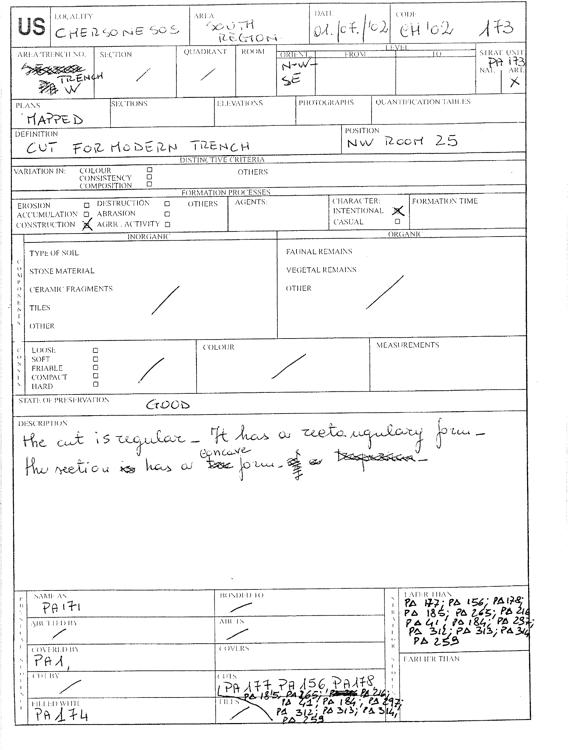 US
LOCALITY
CHERSONESOS
AREA
SOUTH
REGION
DATE
01./07./'02
CODE
CH'02 173
AREA/TRENCH NO.
TRENCH
W
SECTION
/
QUADRANT
/
ROOM
ORIENT.
N-W-
SE
LEVEL
FROM
TO
STRAT. UNIT
PA 173
NAT. ART.
X
PLANS
MAPPED
SECTIONS
ELEVATIONS
PHOTOGRAPHS
QUANTIFICATION TABLES
DEFINITION
CUT FOR MODERN TRENCH
POSITION
NW ROOM 25
DISTINCTIVE CRITERIA
VARIATION IN:
COLOUR
CONSISTENCY
COMPOSITION
OTHERS
FORMATION PROCESSES
EROSION
ACCUMULATION
CONSTRUCTION X
DESTRUCTION
ABRASION
AGRR. ACTIVITY
OTHERS
AGENTS:
CHARACTER:
INTENTIONAL X
CASUAL
FORMATION TIME
COMPONENTS
INORGANIC
TYPE OF SOIL
STONE MATERIAL
CERAMIC FRAGMENTS
TILES
OTHER
/
ORGANIC
FAUNAL REMAINS
VEGETAL REMAINS
OTHER
/
LOOSE
SOFT
FRIABLE
COMPACT
HARD
/
COLOUR
/
MEASUREMENTS
STATE OF PRESERVATION
GOOD
DESCRIPTION
the cut is regular_ It has a rectangulary form_
the section has a concave form.
SAME AS
PA171
BONDED TO
/
ABUTTED BY
/
ABUTS
/
COVERED BY
PA1,
COVERS
CUT BY
/
CUTS
PA177 PA156 PA178
PA 185, PA265; PA 216;
PA 41; PA 184; PA 297;
PA 312; PA 313; PA 314,
PA 259
FILLED WITH
PA174
FILLS
/
LATER THAN
PA 177; PA 156; PA178;
PA 185; PA 265; PA 216
PA 41; PA 184; PA 297;
PA 312; PA 313; PA 314
PA 259
EARLIER THAN